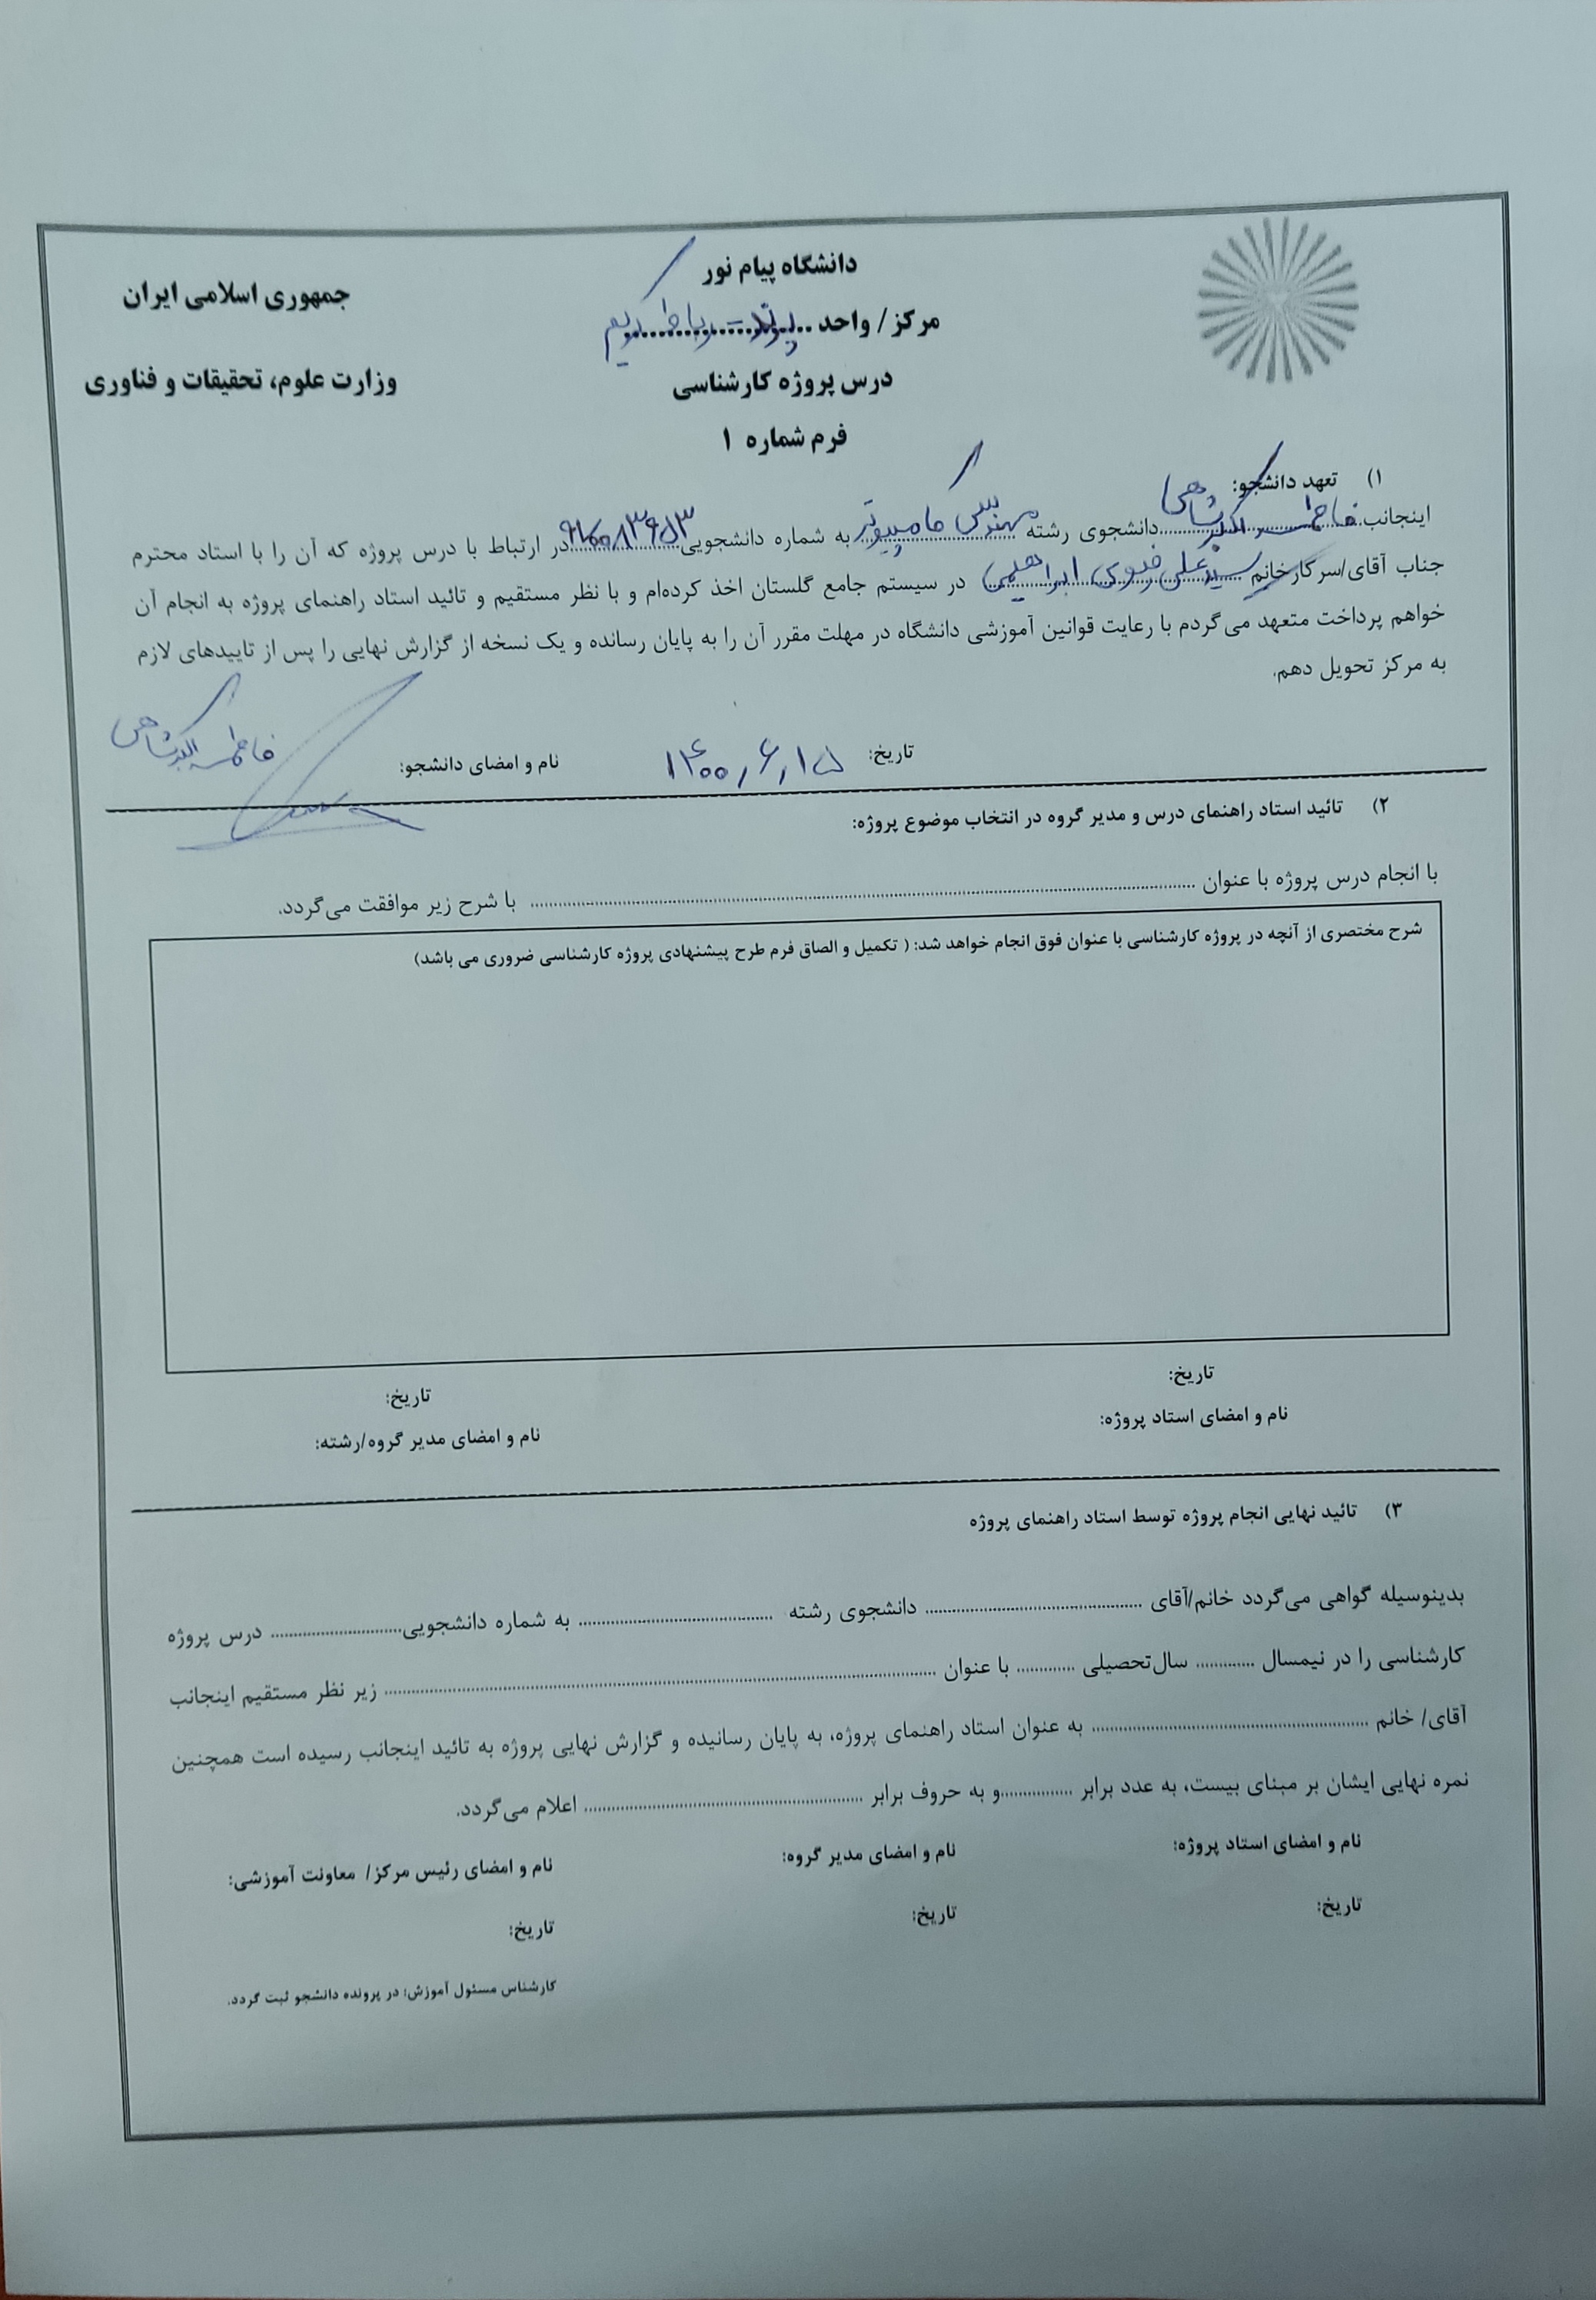 جمهوری اسلامی ایران
وزارت علوم، تحقیقات و فناوری
دانشگاه پیام نور
مرکز/ واحد پرند - رباط کریم
درس پروژه کارشناسی
فرم شماره ۱
۱) تعهد دانشجو:
اینجانب فاطمه اکبرشاهی دانشجوی رشته مهندسی کامپیوتر به شماره دانشجویی در ارتباط با درس پروژه که آن را با استاد محترم
جناب آقای/سرکارخانم سیدعلی رضوی ابراهیمی در سیستم جامع گلستان اخذ کرده‌ام و با نظر مستقیم و تائید استاد راهنمای پروژه به انجام آن
خواهم پرداخت متعهد می‌گردم با رعایت قوانین آموزشی دانشگاه در مهلت مقرر آن را به پایان رسانده و یک نسخه از گزارش نهایی را پس از تاییدهای لازم
به مرکز تحویل دهم.
تاریخ: ۱۴۰۰/۶/۱۵ نام و امضای دانشجو: فاطمه اکبرشاهی
۲) تائید استاد راهنمای درس و مدیر گروه در انتخاب موضوع پروژه:
با انجام درس پروژه با عنوان .......... با شرح زیر موافقت می‌گردد.
شرح مختصری از آنچه در پروژه کارشناسی با عنوان فوق انجام خواهد شد: ( تکمیل و الصاق فرم طرح پیشنهادی پروژه کارشناسی ضروری می باشد)
تاریخ: تاریخ:
نام و امضای استاد پروژه: نام و امضای مدیر گروه/رشته:
۳) تائید نهایی انجام پروژه توسط استاد راهنمای پروژه
بدینوسیله گواهی می‌گردد خانم/آقای .......... دانشجوی رشته .......... به شماره دانشجویی .......... درس پروژه
کارشناسی را در نیمسال .......... سال‌تحصیلی .......... با عنوان .......... زیر نظر مستقیم اینجانب
آقای/ خانم .......... به عنوان استاد راهنمای پروژه، به پایان رسانیده و گزارش نهایی پروژه به تائید اینجانب رسیده است همچنین
نمره نهایی ایشان بر مبنای بیست، به عدد برابر .......... و به حروف برابر .......... اعلام می‌گردد.
نام و امضای استاد پروژه: نام و امضای مدیر گروه: نام و امضای رئیس مرکز/ معاونت آموزشی:
تاریخ: تاریخ: تاریخ:
کارشناس مسئول آموزش: در پرونده دانشجو ثبت گردد.